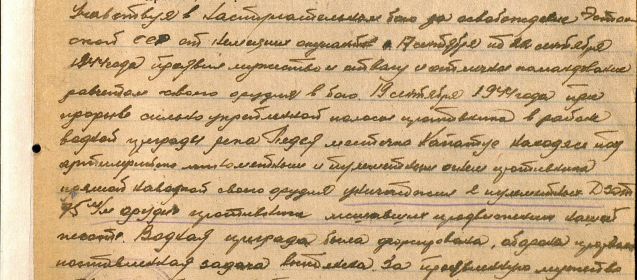 Участвуя в наступательном бою за освобождение Эстон-
ской ССР от немецких оккупантов с 17 сентября по сентября
1944 года проявил мужество и отвагу и отличное командование
расчетом своего орудия в бою. 19 сентября 1944 года при
прорыве сильно укрепленной полосы противника в районе
водной преграды река Педея местечко находясь под
артиллерийско минометным и пулеметным огнем противника
прямой наводкой своего орудия уничтожил 2 пулеметных ДЗОТ
75 м/м орудие противника мешавших продвижению нашей
пехоте. Водная преграда была форсирована, оборона прорвана
поставленная задача выполнена. За проявленное мужество